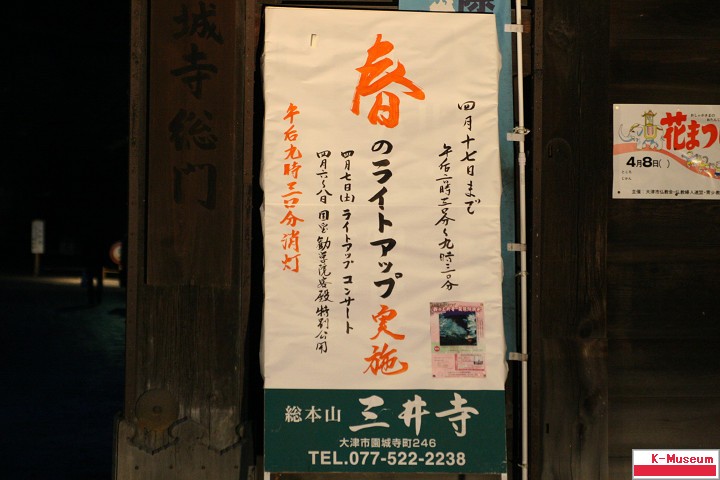 城寺総門
春のライトアップ実施
四月十七日まで
午后六時三〇分〜九時三〇分
四月七日(土)ライトアップコンサート
四月六〜八日 国宝勧学院客殿 特別公開
午后九時三〇分消灯
総本山 三井寺
大津市園城寺町246
TEL.077-522-2238
花まつ
4月8日( )
主催
K-Museum